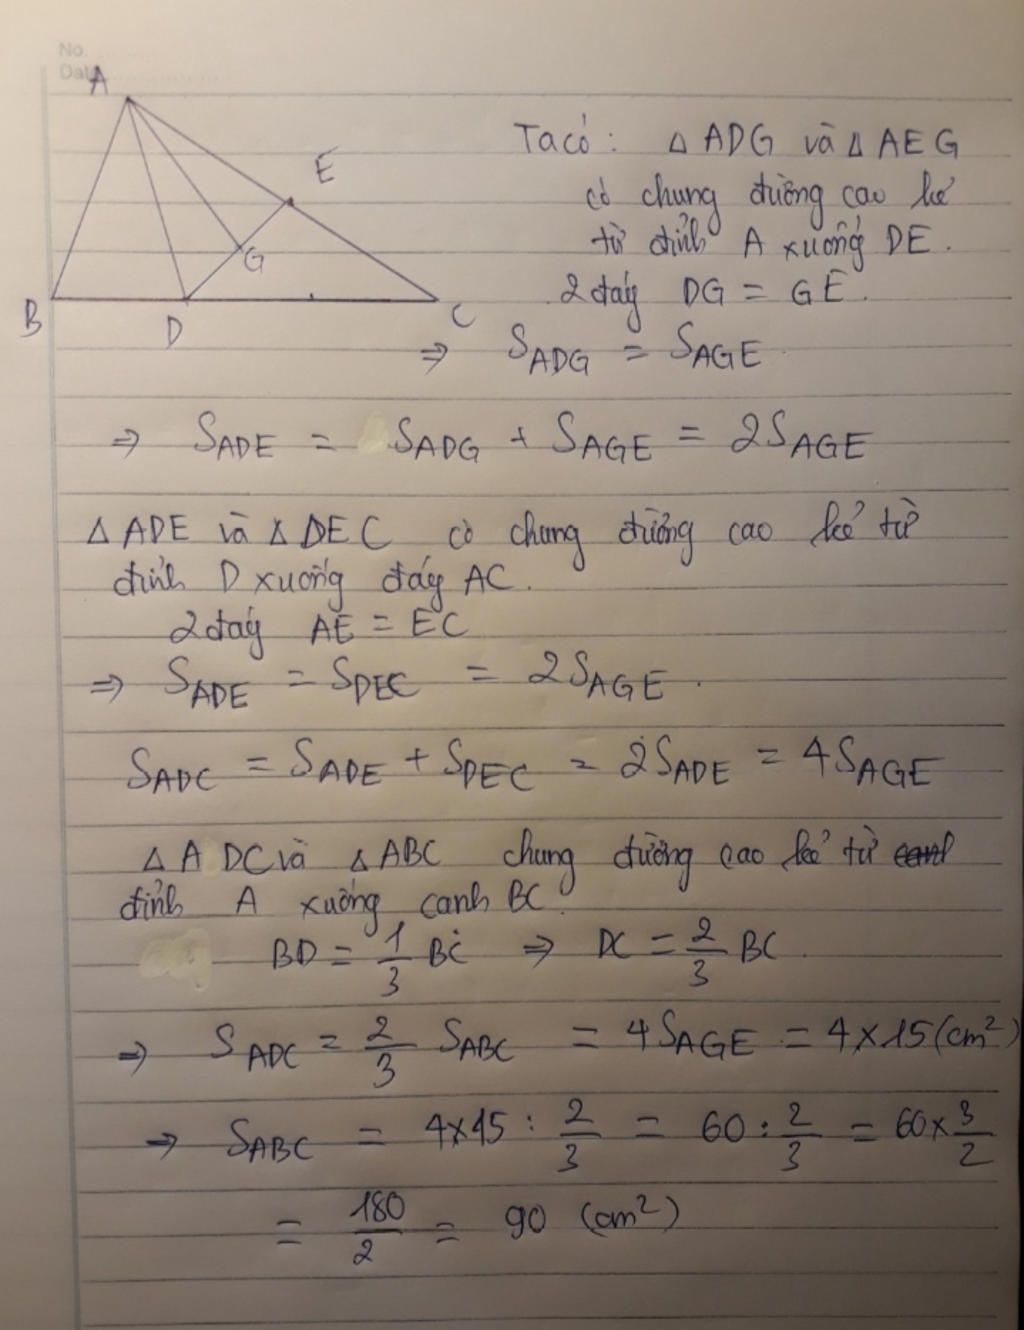 No.
Date
A
E
G
B
D
C
Ta có : △ ADG và △ AEG
có chung đường cao kẻ
từ đỉnh A xuống DE.
2 đáy DG = GE.
⇒ S_ADG = S_AGE.
⇒ S_ADE = S_ADG + S_AGE = 2S_AGE
△ ADE và △ DEC có chung đường cao kẻ từ
đỉnh D xuống đáy AC.
2 đáy AE = EC
⇒ S_ADE = S_DEC = 2S_AGE.
S_ADC = S_ADE + S_DEC = 2S_ADE = 4S_AGE
△ ADC và △ ABC chung đường cao kẻ từ
đỉnh A xuống cạnh BC.
BD = 1/3 BC ⇒ DC = 2/3 BC.
⇒ S_ADC = 2/3 S_ABC = 4S_AGE = 4 × 15 (cm²)
⇒ S_ABC = 4×15 : 2/3 = 60 : 2/3 = 60 × 3/2
= 180/2 = 90 (cm²)